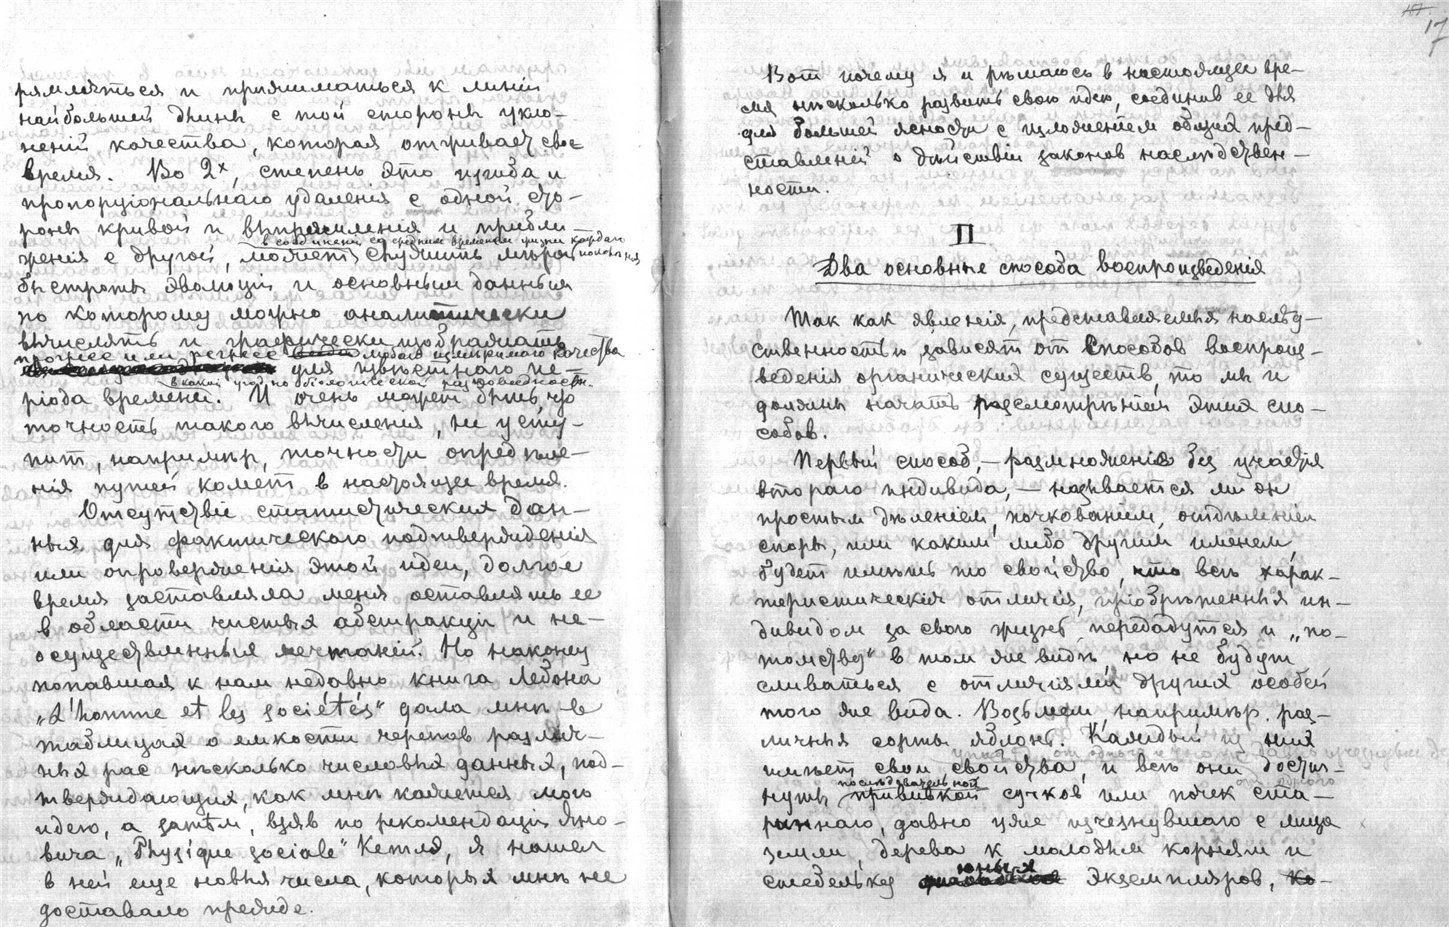 рямляться и прижиматься к линіи
наибольшей длины с той стороны укло-
неній качества, которая отживает свое
время. Во 2х, степень это изгиба и
пропорціональнаго удаленія с одной сто-
роны кривой и выпрямленія и прибли-
в соединении со средним временем жизни каждаго поколѣнія
женія с другой, может служить мѣрой
быстроты эволюціи и основным данным
по которому можно аналитически
вычислять и графически изображать
прогресс или регресс любого измѣримаго качества
для извѣстнаго пе-
в какой угодно біологической разновидности.
ріода времени. И очень может быть, что
точность такого вычисленія, не усту-
пит, напримѣр, точности опредѣле-
нія путей комет в настоящее время.
Отсутствіе статистических дан-
ных для фактическаго подтвержденія
или опроверженія этой идеи, долгое
время заставляла меня оставлять ее
в области чистых абстракцій и не-
осуществленных мечтаній. Но наконец
попавшая к нам недавно книга Лебона
„L'homme et les sociétés" дала мнѣ в
таблицах о емкости черепов различ-
ных рас нѣсколько числовых данных, под-
тверждающих, как мнѣ кажется мою
идею, а затѣм, взяв по рекомендаціи Яно-
вича „Physique sociale" Кетлэ, я нашел
в ней еще новыя числа, которых мнѣ не
доставало прежде.
17
Вот почему я и рѣшаюсь в настоящее вре-
мя нѣсколько развить свою идею, соединив ее для
для большей ясности с изложеніем общих пред-
ставленій о дѣйствіи законов наслѣдствен-
ности.
II
Два основные способа воспроизведенія
Так как явленія, представляемыя наслѣд-
ственностью зависят от способов воспроиз-
веденія органических существ, то мы и
должны начать разсмотрѣніем этих спо-
собов.
Первый способ, — размноженіе без участія
втораго индивида, — называется ли он
простым дѣленіем, почкованіем, отдѣленіем
споры, или каким либо другим именем
будет имѣть то свойство, что всѣ харак-
теристическія отличія, пріобрѣтенныя ин-
дивидом за свою жизнь, передадутся и „по-
томству" в том же видѣ, но не будут
сливаться с отличіями других особей
того же вида. Возьмем, напримѣр. раз-
личные сорты яблонь. Каждый из них
имѣет свои свойства, и всѣ они достиг-
последовательной
нуты прививкой сучков или почек ста-
риннаго, давно уже изчезнувшаго с лица
земли, дерева к молодым корням и
юных
стебельку экземпляров, ко-